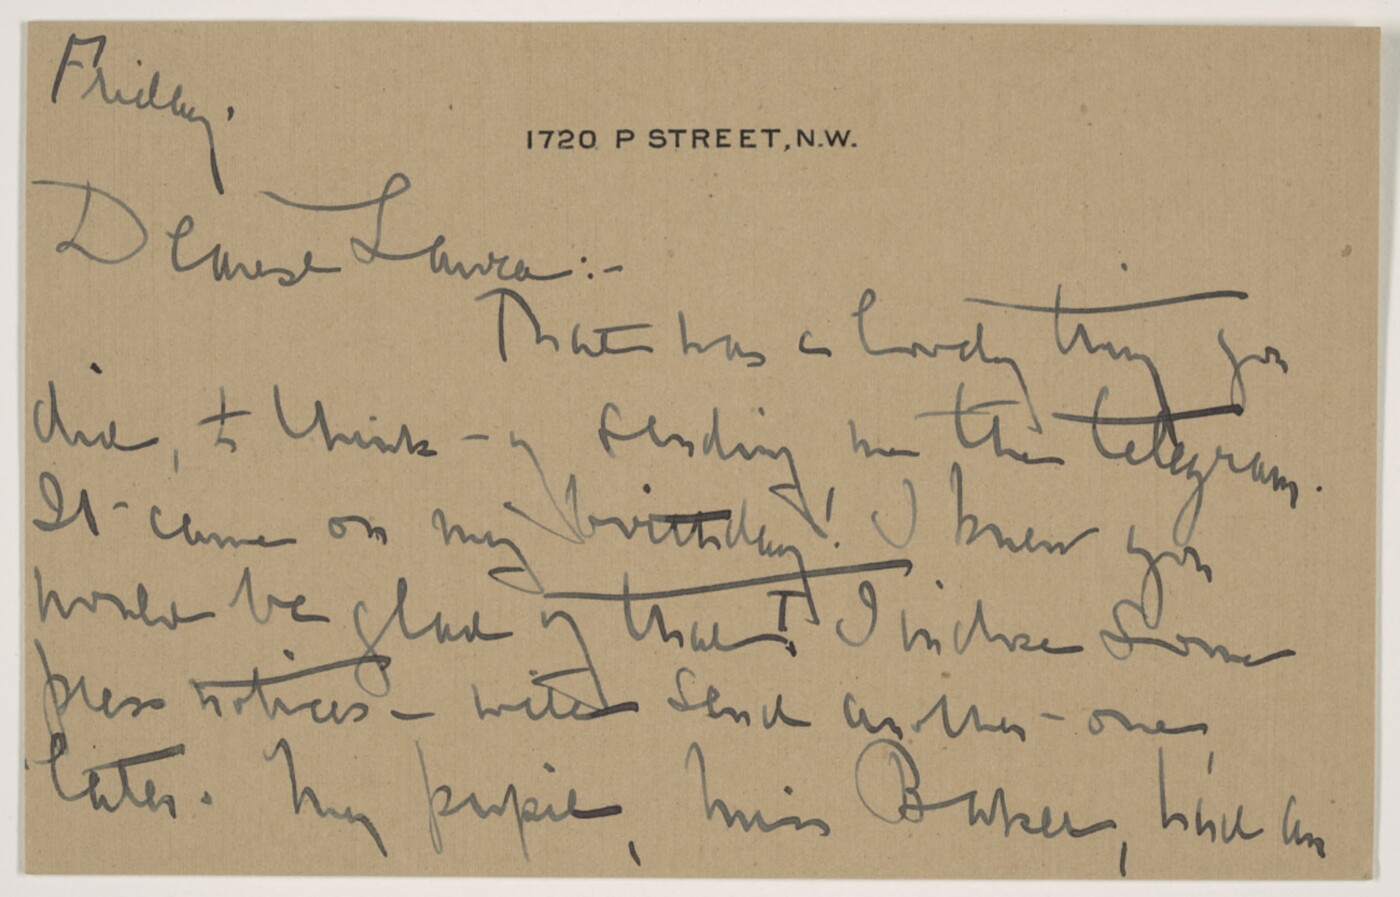 Friday.
1720 P STREET, N.W.
Dearest Laura:-
That was a lovely thing you
did, to think - of sending me the telegram.
It - came on my birthday! I knew you
would be glad of that! I inclose some
press notices - will send another - one,
later. My pupil, Miss Barker, had an